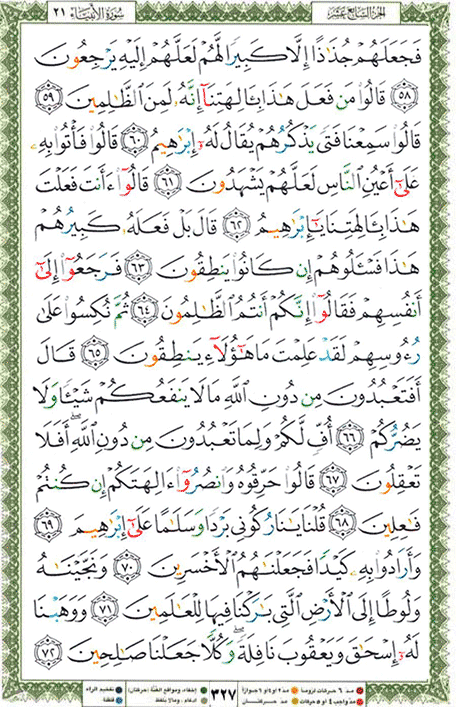 الجزء السابع عشر
سورة الأنبياء ٢١
فَجَعَلَهُمْ جُذَاذًا إِلَّا كَبِيرًا لَّهُمْ لَعَلَّهُمْ إِلَيْهِ يَرْجِعُونَ
﴿٥٨﴾ قَالُوا۟ مَن فَعَلَ هَٰذَا بِـَٔالِهَتِنَآ إِنَّهُۥ لَمِنَ ٱلظَّٰلِمِينَ ﴿٥٩﴾
قَالُوا۟ سَمِعْنَا فَتًى يَذْكُرُهُمْ يُقَالُ لَهُۥٓ إِبْرَٰهِيمُ ﴿٦٠﴾ قَالُوا۟ فَأْتُوا۟ بِهِۦ
عَلَىٰٓ أَعْيُنِ ٱلنَّاسِ لَعَلَّهُمْ يَشْهَدُونَ ﴿٦١﴾ قَالُوٓا۟ ءَأَنتَ فَعَلْتَ
هَٰذَا بِـَٔالِهَتِنَا يَٰٓإِبْرَٰهِيمُ ﴿٦٢﴾ قَالَ بَلْ فَعَلَهُۥ كَبِيرُهُمْ
هَٰذَا فَسْـَٔلُوهُمْ إِن كَانُوا۟ يَنطِقُونَ ﴿٦٣﴾ فَرَجَعُوٓا۟ إِلَىٰٓ
أَنفُسِهِمْ فَقَالُوٓا۟ إِنَّكُمْ أَنتُمُ ٱلظَّٰلِمُونَ ﴿٦٤﴾ ثُمَّ نُكِسُوا۟ عَلَىٰ
رُءُوسِهِمْ لَقَدْ عَلِمْتَ مَا هَٰٓؤُلَآءِ يَنطِقُونَ ﴿٦٥﴾ قَالَ
أَفَتَعْبُدُونَ مِن دُونِ ٱللَّهِ مَا لَا يَنفَعُكُمْ شَيْـًٔا وَلَا
يَضُرُّكُمْ ﴿٦٦﴾ أُفٍّ لَّكُمْ وَلِمَا تَعْبُدُونَ مِن دُونِ ٱللَّهِ ۖ أَفَلَا
تَعْقِلُونَ ﴿٦٧﴾ قَالُوا۟ حَرِّقُوهُ وَٱنصُرُوٓا۟ ءَالِهَتَكُمْ إِن كُنتُمْ
فَٰعِلِينَ ﴿٦٨﴾ قُلْنَا يَٰنَارُ كُونِى بَرْدًا وَسَلَٰمًا عَلَىٰٓ إِبْرَٰهِيمَ ﴿٦٩﴾
وَأَرَادُوا۟ بِهِۦ كَيْدًا فَجَعَلْنَٰهُمُ ٱلْأَخْسَرِينَ ﴿٧٠﴾ وَنَجَّيْنَٰهُ
وَلُوطًا إِلَى ٱلْأَرْضِ ٱلَّتِى بَٰرَكْنَا فِيهَا لِلْعَٰلَمِينَ ﴿٧١﴾ وَوَهَبْنَا
لَهُۥٓ إِسْحَٰقَ وَيَعْقُوبَ نَافِلَةً ۖ وَكُلًّا جَعَلْنَا صَٰلِحِينَ ﴿٧٢﴾
مد ٦ حركات لزوماً
مد ٢ أو ٤ أو ٦ جوازاً
مد واجب ٤ أو ٥ حركات
مد حركتان
٣٢٧
إخفاء، ومواقع الغنة (حركتان)
إدغام، وما لا يلفظ
تفخيم الراء
قلقلة